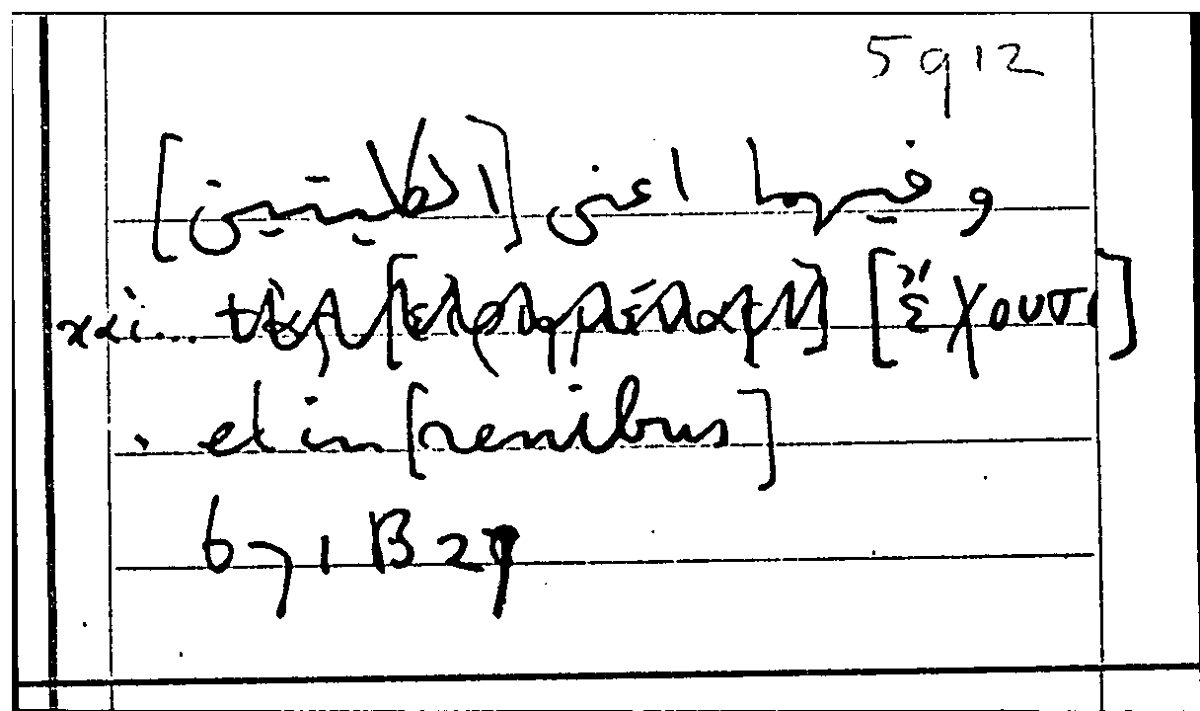 5912
وفيهما اعنى [الكليتين]
καὶ... [ἔχουσι]
et in [renibus]
671 B